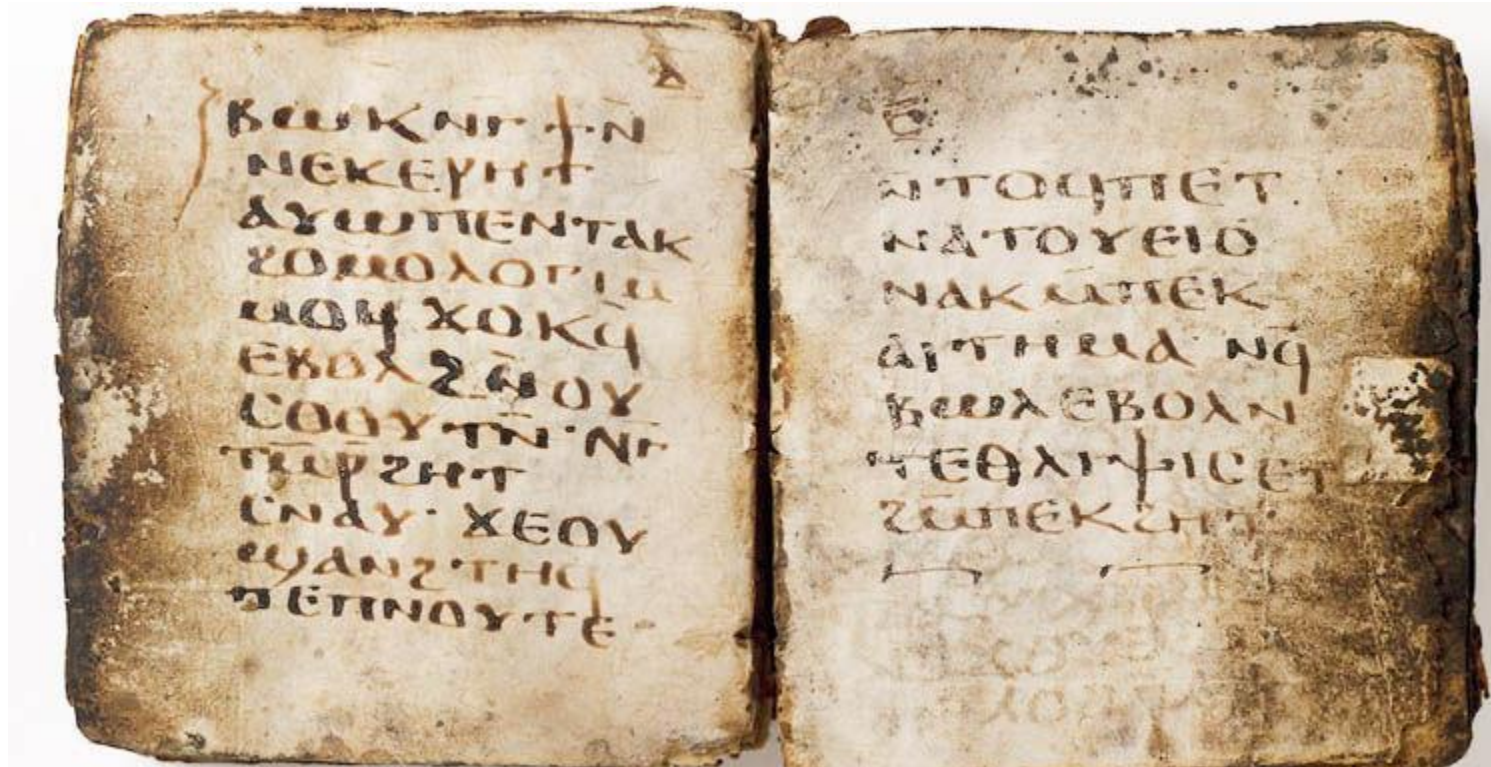 ⲇ
ⲃⲱⲕⲛⲅϯⲛ̄
ⲛⲉⲕⲉⲣⲏⲧ
ⲁⲩⲱⲡⲉⲛⲧⲁⲕ
ϩⲟⲙⲟⲗⲟⲅⲓⲙ
ⲙⲟϥ ϫⲟⲕϥ̄
ⲉⲃⲟⲗϩⲛ̄ⲟⲩ
ⲥⲟⲟⲩⲧⲛ̄· ⲛⲅ
ⲧⲙ̄ⲣϩⲏⲧ
ⲥⲛⲁⲩ· ϫⲉⲟⲩ
ϣⲁⲛϩⲧⲏϥ
ⲡⲉⲡⲛⲟⲩⲧⲉ
ⲉ̄
ⲛⲧⲟϥⲡⲉⲧ
ⲛⲁⲧⲟⲩⲉⲓⲟ
ⲛⲁⲕ ⲙ̄ⲡⲉⲕ
ⲁⲓⲧⲏⲙⲁ ⲛϥ̄
ⲃⲱⲗⲉⲃⲟⲗⲛ
ⲧⲉⲑⲗⲓⲯⲓⲥⲉⲧ
ϩⲙ̄ⲡⲉⲕϩⲏⲧ·